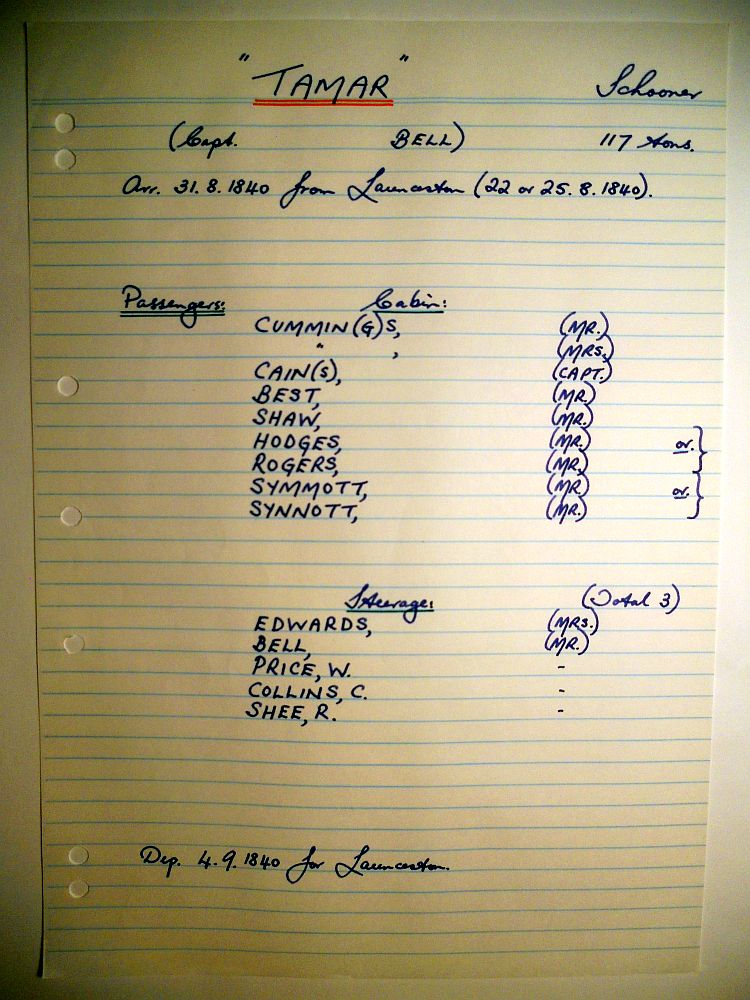 "TAMAR" Schooner
(Capt. BELL) 117 tons.
Arr. 31.8.1840 from Launceston (22 or 25.8.1840).
Passengers: Cabin:
CUMMIN(G)S, (MR.)
" , (MRS.)
CAIN(S), (CAPT.)
BEST, (MR.)
SHAW, (MR.)
HODGES, (MR.) or. }
ROGERS, (MR.)
SYMMOTT, (MR.) or. }
SYNNOTT, (MR.)
Steerage: (Total 3)
EDWARDS, (MRS.)
BELL, (MR.)
PRICE, W. -
COLLINS, C. -
SHEE, R. -
Dep. 4.9.1840 for Launceston.